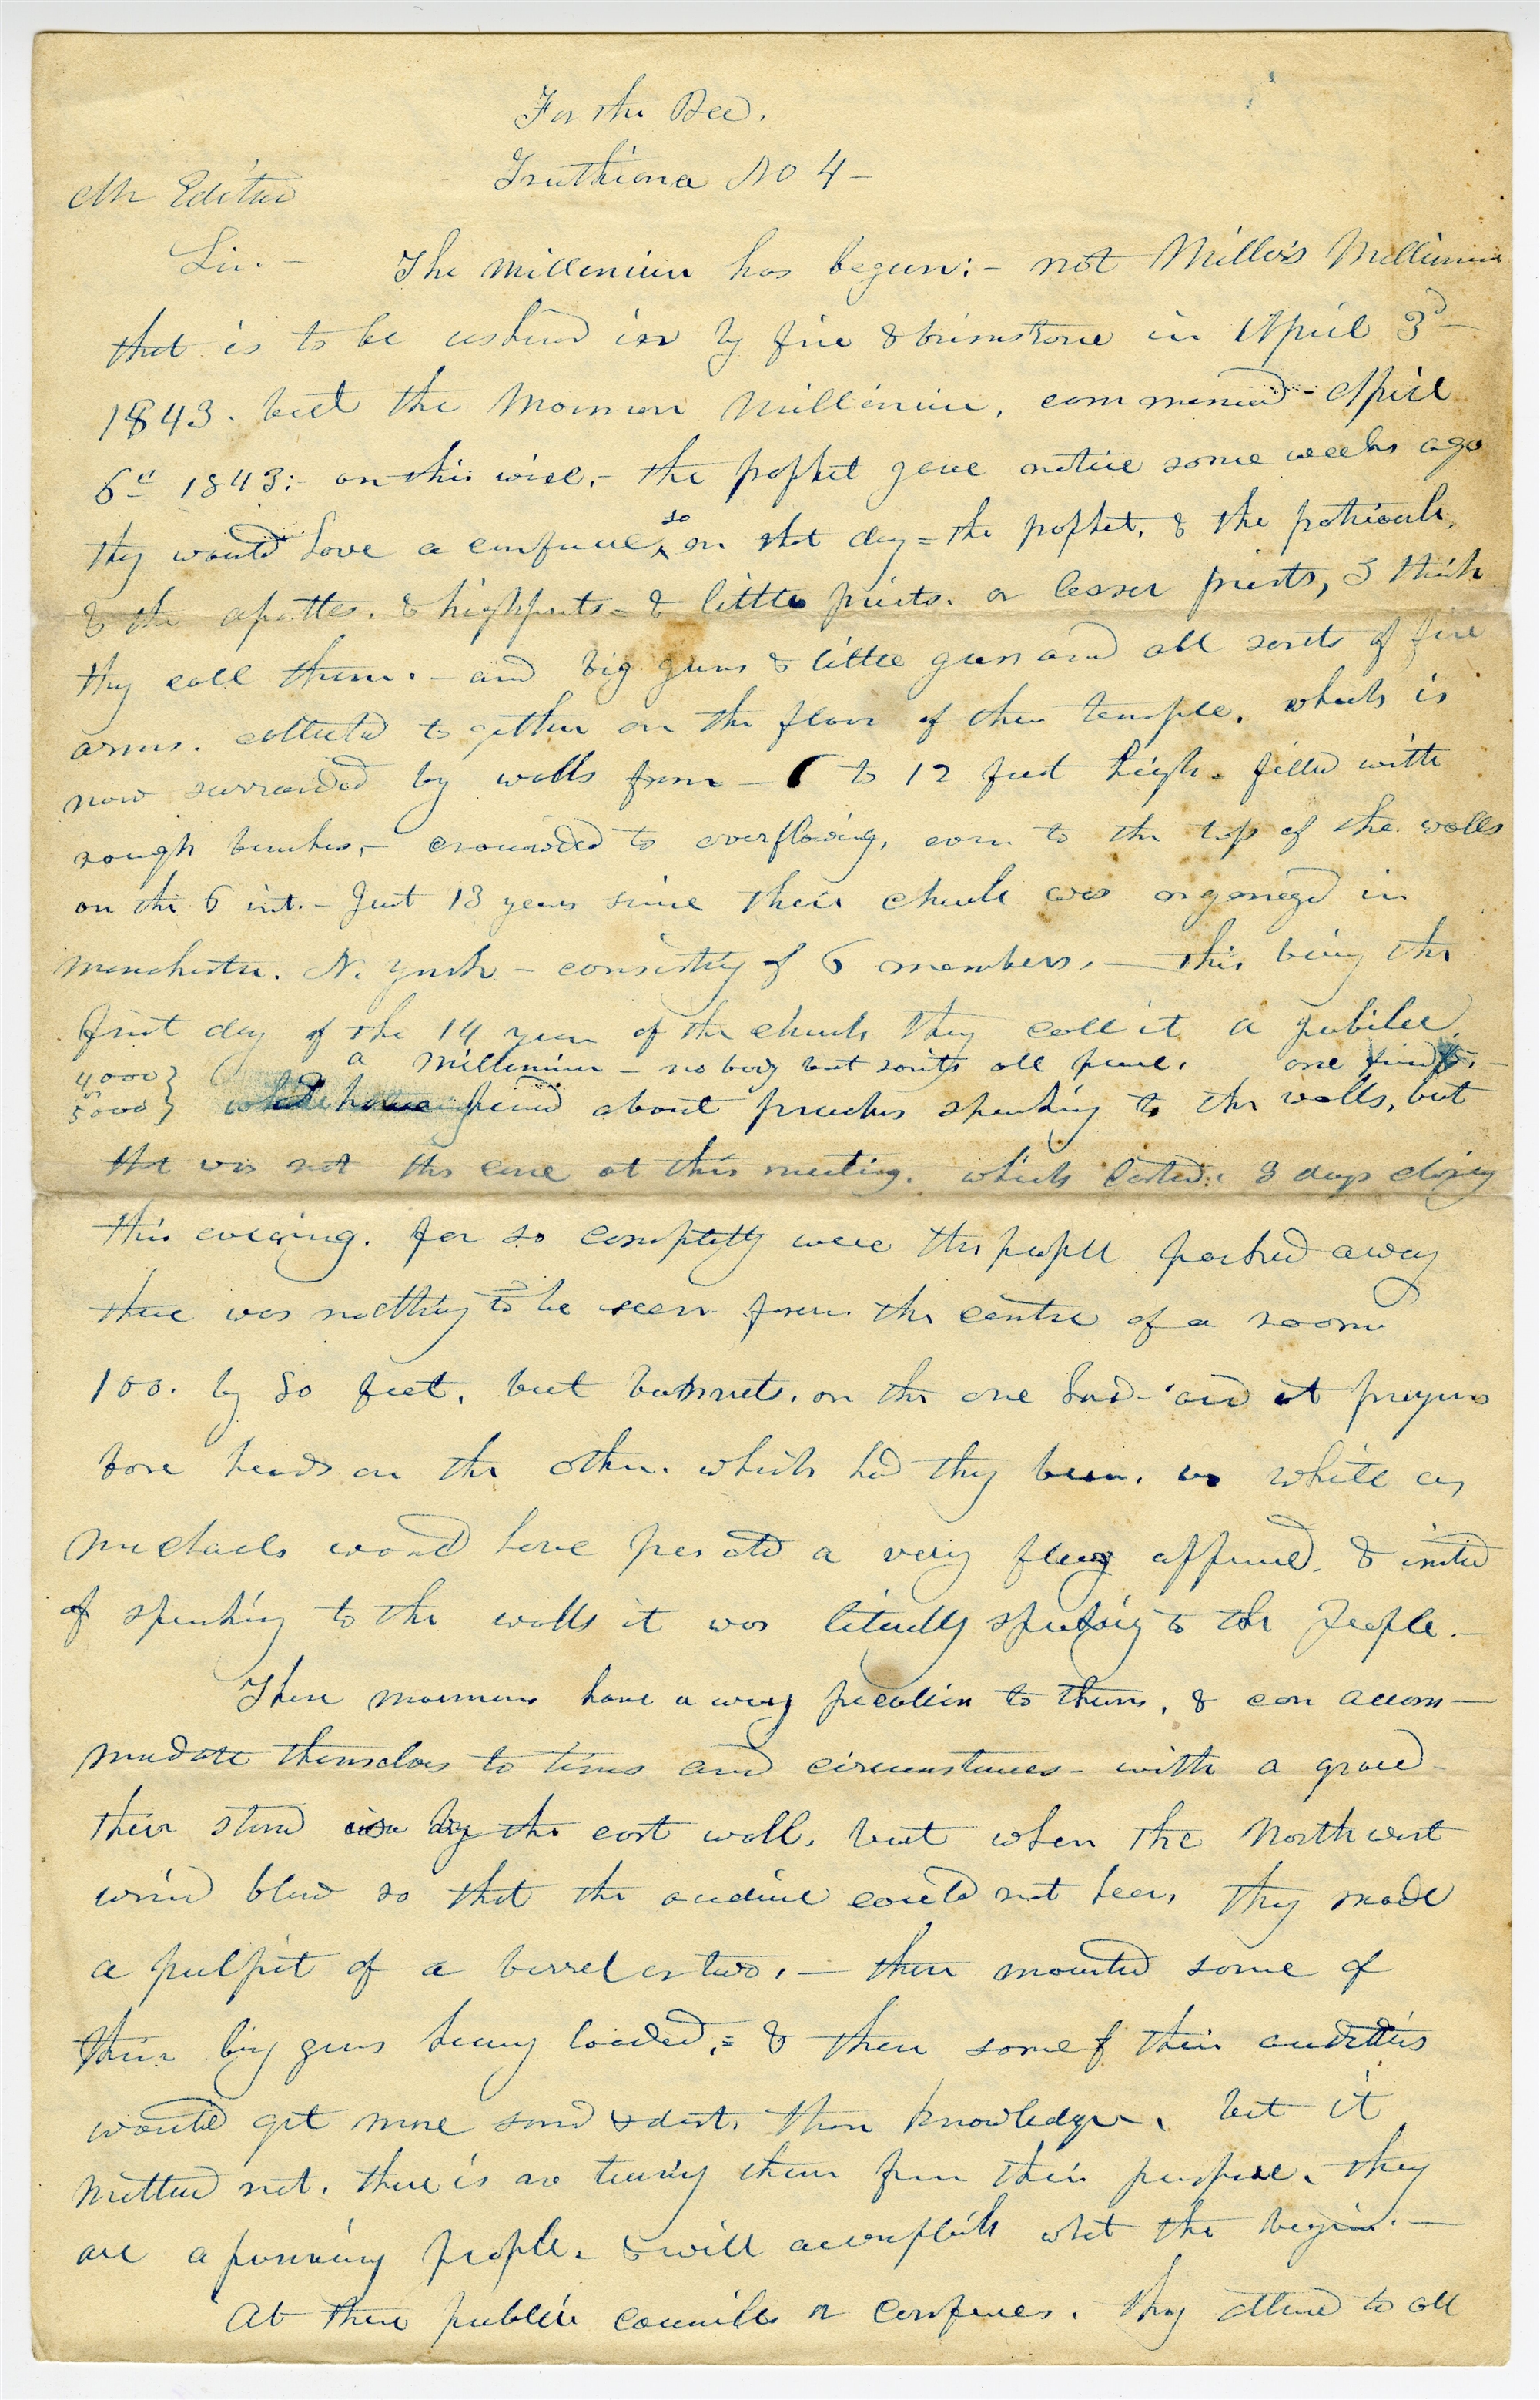 For the Bee.
Truthiana No 4-
Mr Editor
Sir.- The millenium has begun:- not Miller's Millenium
that is to be ushered in by fire & brimstone in April 3d-
1843. but the Mormon Millenium, commenced April
6th 1843:- on this wise,- the prophet gave notice some weeks ago
they would have a conference, so on that day= the prophet, & the patriarch,
& the apostles. & highpriests- & little priests. or lesser priests, I think
they call them.- and big guns & little guns and all sorts of fire
arms. collected together on the floor of their temple. which is
now surrounded by walls from - 6 to 12 feet high. filled with
rough benches,- crowded to overflowing, even to the top of the walls
on the 6 inst.- Just 13 years since their church was organized in
Manchester. N. York - consisting of 6 members.- this being the
first day of the 14 year of the church they call it a jubilee,
a Millenium - nobody but saints all peace.
4000 } or 5000 } about preachers speaking to the walls, but
that was not the case at this meeting. which lasted 3 days closing
this evening. for so completely were the people packed away
there was nothing to be seen from the centre of a room
100. by 80 feet. but bonnets. on the one hand- and at prayers
bare heads on the other. which had they been. as white as
would have presented a very fleecy & instead
of speaking to the walls it was literally speaking to the people.-
These mormons have a way peculiar to them, & can accom-
modate themselves to times and circumstances- with a grace
their stand was by the east wall. but when the North west
wind blew so that the audience could not hear, they made
a pulpit of a barrel or two,- there mounted some of
their big guns heavy loaded,= & then some of their auditors
would get more sand & dust. than knowledge. but it
mattered not. there is no turning them from their purpose. they
are a persevering people. & will accomplish what the begin.-
At these public councils or conferences. they attend to all